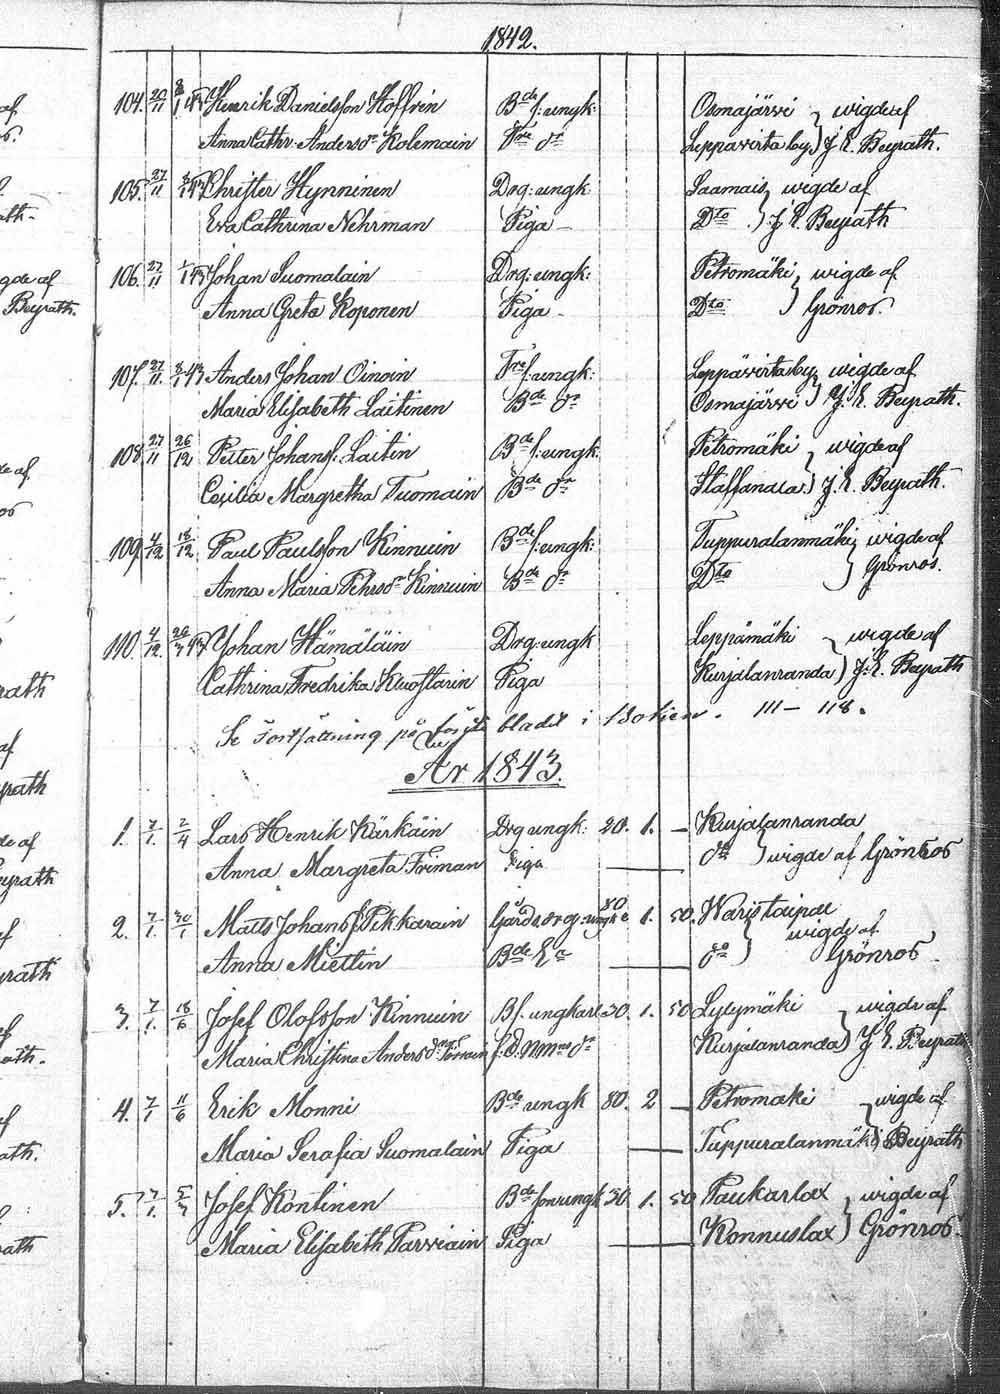 1842.
104. 20/11 8/1 43 Henrik Danielsson Hoffrén Bde s: ungk: Osmajärvi wigde af
Anna Cathr. Andersdr Kolemain Tre dr Leppävirta by J. E. Beyrath.
105. 27/11 8/1 43 Christer Hynninen Drg: ungk Saamais wigde af
Eva Cathrina Nehrman Piga Dto J. E. Beyrath
106. 27/11 1/1 43 Johan Suomalain Drg: ungk: Petromäki wigde af
Anna Greta Koponen Piga Dto Grönros.
107. 27/11 8/1 43 Anders Johan Oinoin Tre s: ungk: Leppävirta by wigde af
Maria Elisabeth Laitinen Bde dr Osmajärvi J. E. Beyrath.
108. 27/11 26/12 Petter Johanss: Laitin Bde s: ungk: Petromäki wigde af
Cecilia Margretha Tuomain Bde dr Staffansla J. E. Beyrath.
109. 4/12 18/12 Paul Paulsson Kinnuin Bde s: ungk: Tuppuralanmäki wigde af
Anna Maria Pehrsdr Kinnuin Bde dr Dto Grönros.
110. 4/12 26/3 43 Johan Hämäläin Drg: ungk Leppämäki wigde af
Cathrina Fredrika Kluostarin Piga Kurjalanranda J. E. Beyrath
Se Fortsättning på bladet i Boken. 111 – 118.
År 1843.
1. 7/1 2/4 Lars Henrik Kärkäin Drg ungk: 20. 1. – Kurjalanranda
Anna Margreta Friman Piga do wigde af Grönros
2. 7/1 30/1 Matts Johanss Pikkarain Gårds drg: ungk 80 1. 50. Waristaipal wigde af
Anna Miettin Bde E:a do Grönros
3. 7/1 18/6 Josef Olofsson Kinnuin Bs. ungkarl 30. 1. 50 Lylymäki wigde af
Maria Christina Andersdr Kurjalanranda J. E. Beyrath
4. 7/1 11/6 Erik Monni Bde ungk 80. 2 – Petromäki wigde af
Maria Serafia Suomalain Piga Tuppuralanmäki Beyrath
5. 7/1 5/3 Josef Kontinen Bde son ungk 30. 1. 50 Paukarlax wigde af
Maria Elisabeth Parviain Piga Konnuslax Grönros.